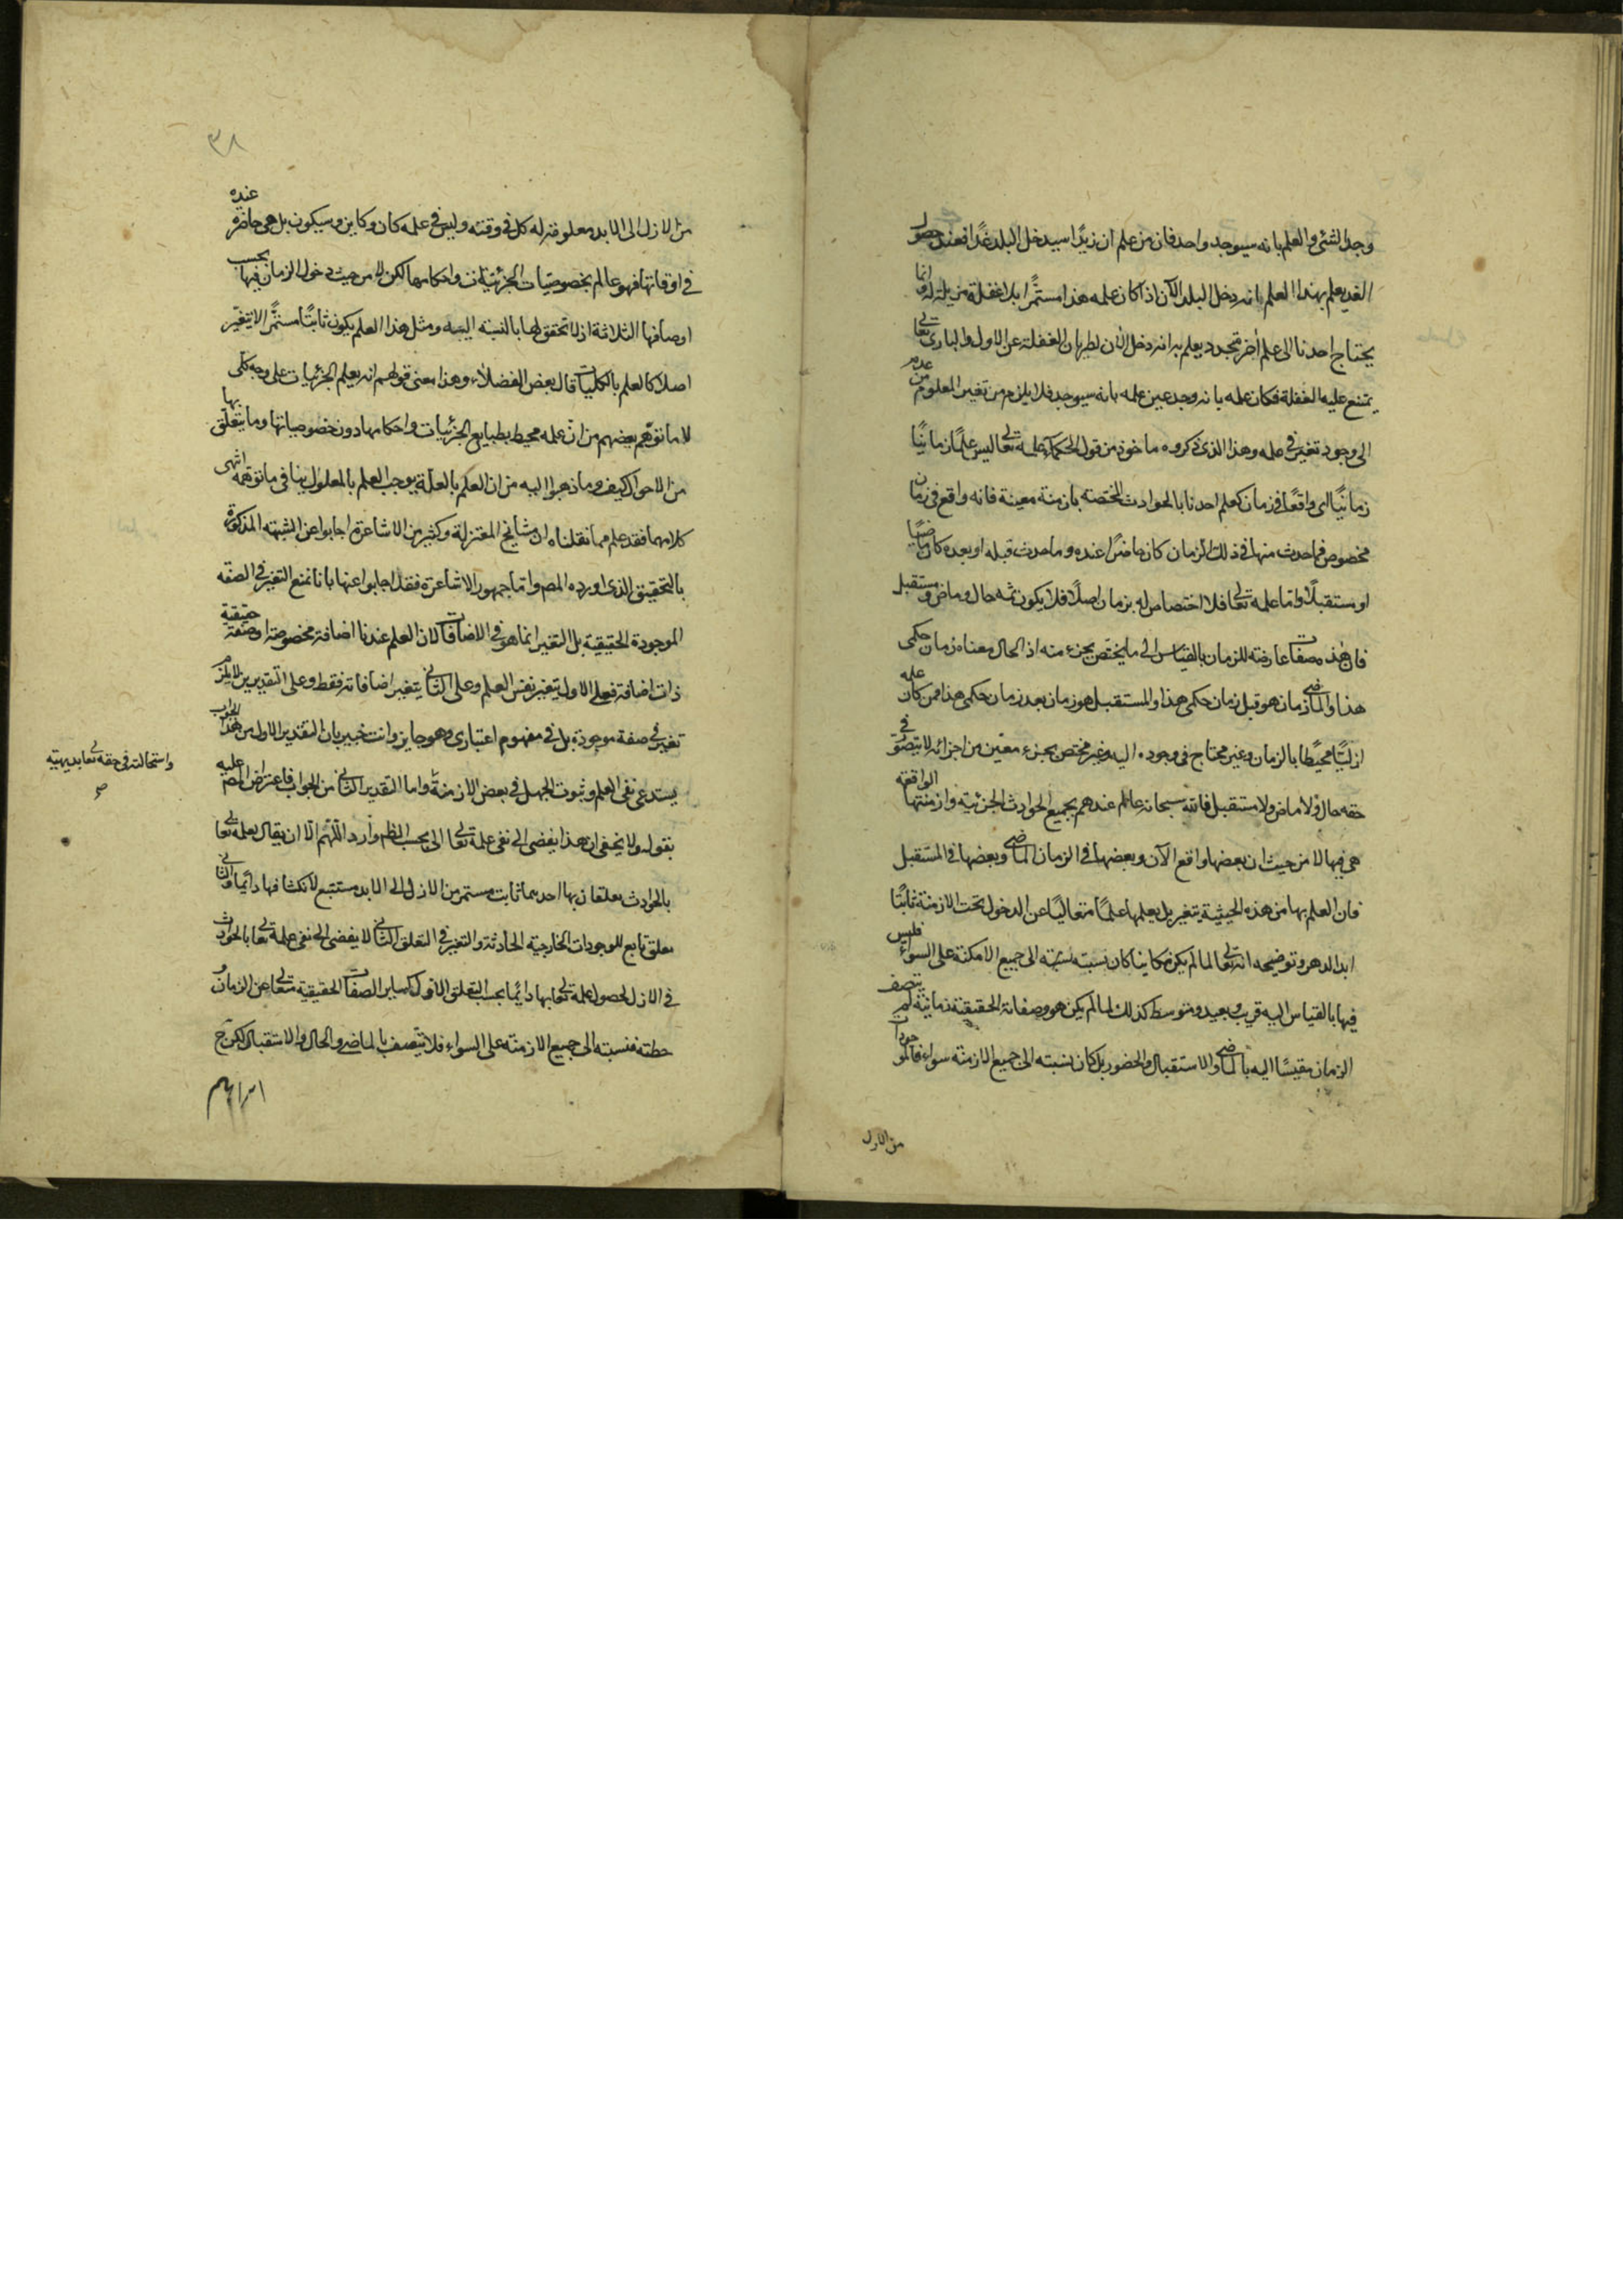 وجد الشئ والعلم بانه سيوجد واحد فان من علم ان زيدًا سيدخل البلد غدًا فعند حصول
الغد يعلم بهذا العلم بانه دخل البلد الآن اذا كان علمه هذا مستمرًا بلا غفلة مزيلة له وانما
يحتاج احدنا الى علم آخر متجدد يعلم به انه دخل الآن لطريان الغفلة عن الاول والبارى تعالى
يمتنع عليه الغفلة فكان علمه بانه وجد عين علمه بانه سيوجد فلا يلزم من تغير المعلوم من عدم
الى وجود تغير فى علمه وهذا الذى ذكروه ماخوذ من قول الحكماء علمه تعالى ليس علمًا زمانيًا
زمانيًا اى واقعًا فى زمان كعلم احدنا بالحوادث المختصه بازمنة معينة فانه واقع فى زمان
مخصوص فما حدث منها فى ذلك الزمان كان حاضرًا عنده وما حدث قبله او بعده كان ماضيًا
او مستقبلًا واما علمه تعالى فلا اختصاص له بزمان اصلًا فلا يكون ثمه حال وماض ومستقبل
فان هذه صفات عارضه للزمان بالقياس الى ما يختص بجزء منه اذ الحال معناه زمان حكمى
هذا والماضى زمان هو قبل زمان حكمى هذا والمستقبل هو زمان بعد زمان حكمى هذا فمن كان علمه
ازليًا محيطًا بالزمان وغير محتاج فى وجوده اليه وغير مختص بجزء معين من اجزائه لا يتصور فى
حقه حال ولا ماض ولا مستقبل فالله سبحانه عالم عندهم بجميع الحوادث الجزئية وازمنتها الواقعه
هى فيها لا من حيث ان بعضها واقع الآن وبعضها فى الزمان الماضى وبعضها فى المستقبل
فان العلم بها من هذه الحيثية يتغير بل يعلمها علمًا متعاليًا عن الدخول تحت الازمنة ثابتًا
ابد الدهر وتوضيحه انه تعالى لما لم يكن مكانيا كان نسبته الى جميع الامكنة على السواء فليس
فيها بالقياس اليه قريب وبعيد ومتوسط كذلك لما لم يكن هو وصفاته الحقيقة زمانية لم يتصف
الزمان مقيسًا اليه بالماضى والاستقبال والحضور بل كان نسبته الى جميع الازمنة سواء فالموجودات
من الازل
٣٨
من الازل الى الابد معلومة له كل فى وقته وليس فى علمه كان وكاين وسيكون بل هى حاضرة عنده
فى اوقاتها فهو عالم بخصوصيات الجزئيات واحكامها لكن لا من حيث دخول الزمان فيها بحسب
اوصافها الثلاثة اذ لا تحقق لها بالنسبه اليه ومثل هذا العلم يكون ثابتًا مستمرًا لا يتغير
اصلا كالعلم بالكليات قال بعض الفضلاء وهذا معنى قولهم انه يعلم الجزئيات على وجه كلى
لا ما توهم بعضهم من ان علمه محيط بطبايع الجزئيات واحكامها دون خصوصياتها وما يتعلق بها
من الاحوال كيف وما ذهبوا اليه من ان العلم بالعلة يوجب العلم بالمعلول ينافى ما توهمه انتهى
كلامهما فقد علم مما نقلناه ان مشايخ المعتزلة وكثير من الاشاعرة اجابوا عن الشبهه المذكورة
بالتحقيق الذى اورده المص واما جمهور الاشاعرة فقد اجابوا عنها بانا نمنع التغير فى الصفه
الموجودة الحقيقية بل التغير انما هو فى الاضافات لان العلم عندنا اضافة مخصوصة او صفة حقيقة
ذات اضافة فعلى الاول يتغير نفس العلم وعلى الثانى يتغير اضافاته فقط وعلى التقديرين لا يلزم
تغير فى صفة موجودة بل فى مفهوم اعتبارى وهو جايز وانت خبير بان التقدير الاول من هذا الجواب
يستدعى نفى العلم وثبوت الجهل فى بعض الازمنة واما التقدير الثانى من الجواب فاعتراض المص عليه
بقوله ولا يخفى ان هذا يفضى الى نفى علمه تعالى الى بحسب الظ وارد اللهم الا ان يقال لعلمه تعالى
بالحوادث تعلقان بها احدهما ثابت مستمر من الازل الى الابد مستتبع لانكشافها دائما والثانى
تعلق تابع للوجودات الخارجية الحادثة والتغير فى التعلق الثانى لا يفضى الى نفى علمه تعالى بالحوادث
فى الازل لحصول علمه تعالى بها دائما بحسب التعلق الاول كساير الصفات الحقيقية متعال عن الزمان و
حيطته فنسبته الى جميع الازمنه على السواء فلا يتصف بالماضى والحال والاستقبال لكن ح
واستحالته فى حقه تعالى بديهية